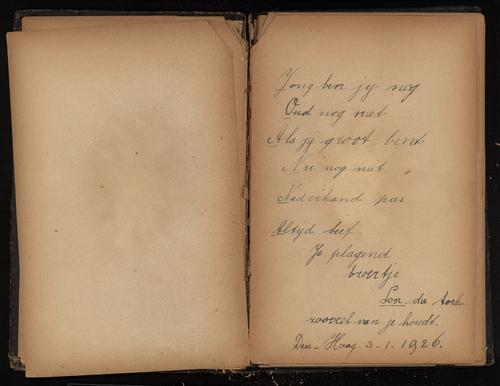 Jong ben jij nog
Oud nog niet
Als jij groot bent
Nu nog niet
Naderhand pas
Altijd lief.
Je plagend
broertje
Lou. die toch
zooveel van je houdt.
Den-Haag 3.1.1926.